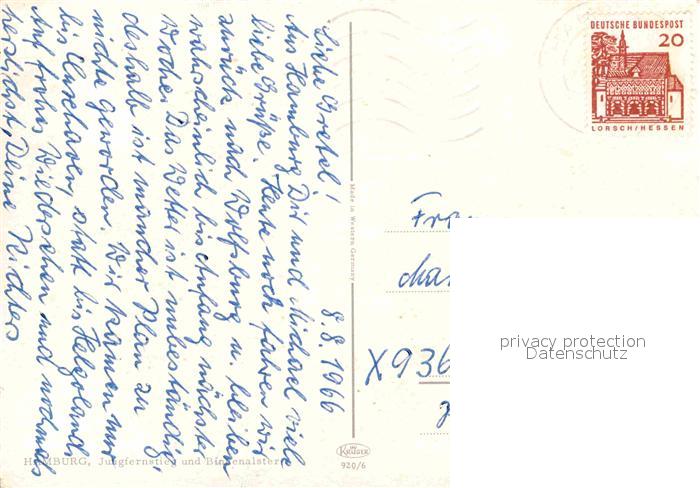 8.8.1966
Liebe Gretel!
Aus Hamburg Dir und Michael viele
liebe Grüße. Heute noch fahren wir
zurück nach Wolfsburg u. bleiben
wahrscheinlich bis Anfang nächster
Woche. Das Wetter ist unbeständig,
deshalb ist mancher Plan zu
nichte geworden. Wir kamen nur
bis Cuxhaven, statt bis Helgoland.
Auf frohes Wiedersehen und nochmals
herzlichst, Deine Richters
HAMBURG, Jungfernstieg und Binnenalster
Made in Western Germany
KRÜGER
920/6
DEUTSCHE BUNDESPOST
20
LORSCH/HESSEN
Frau
X936
privacy protection
Datenschutz